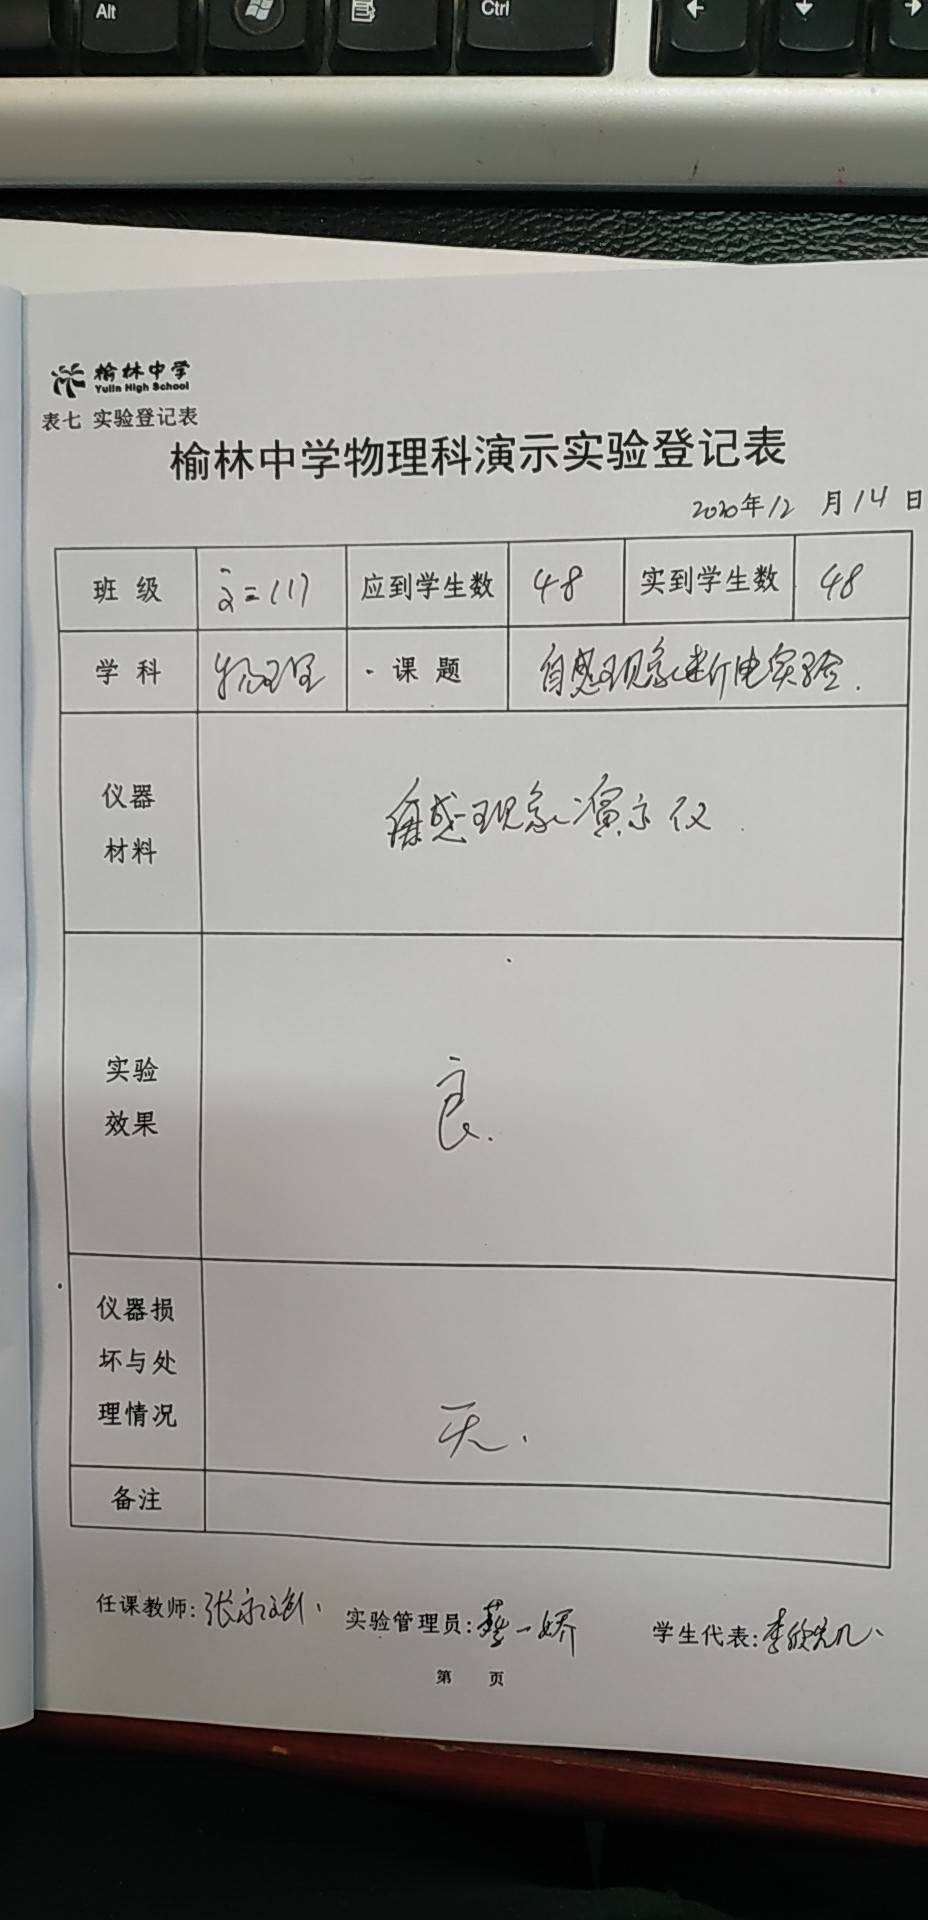 Alt
Ctrl
榆林中学
Yulin High School
表七 实验登记表
榆林中学物理科演示实验登记表
2020年12月14日
班级 高二(1) 应到学生数 48 实到学生数 48
学科 物理 课题 自感现象断电实验.
仪器
材料
自感现象演示仪
实验
效果
良.
仪器损
坏与处
理情况
无.
备注
任课教师: 实验管理员: 学生代表:
第 页